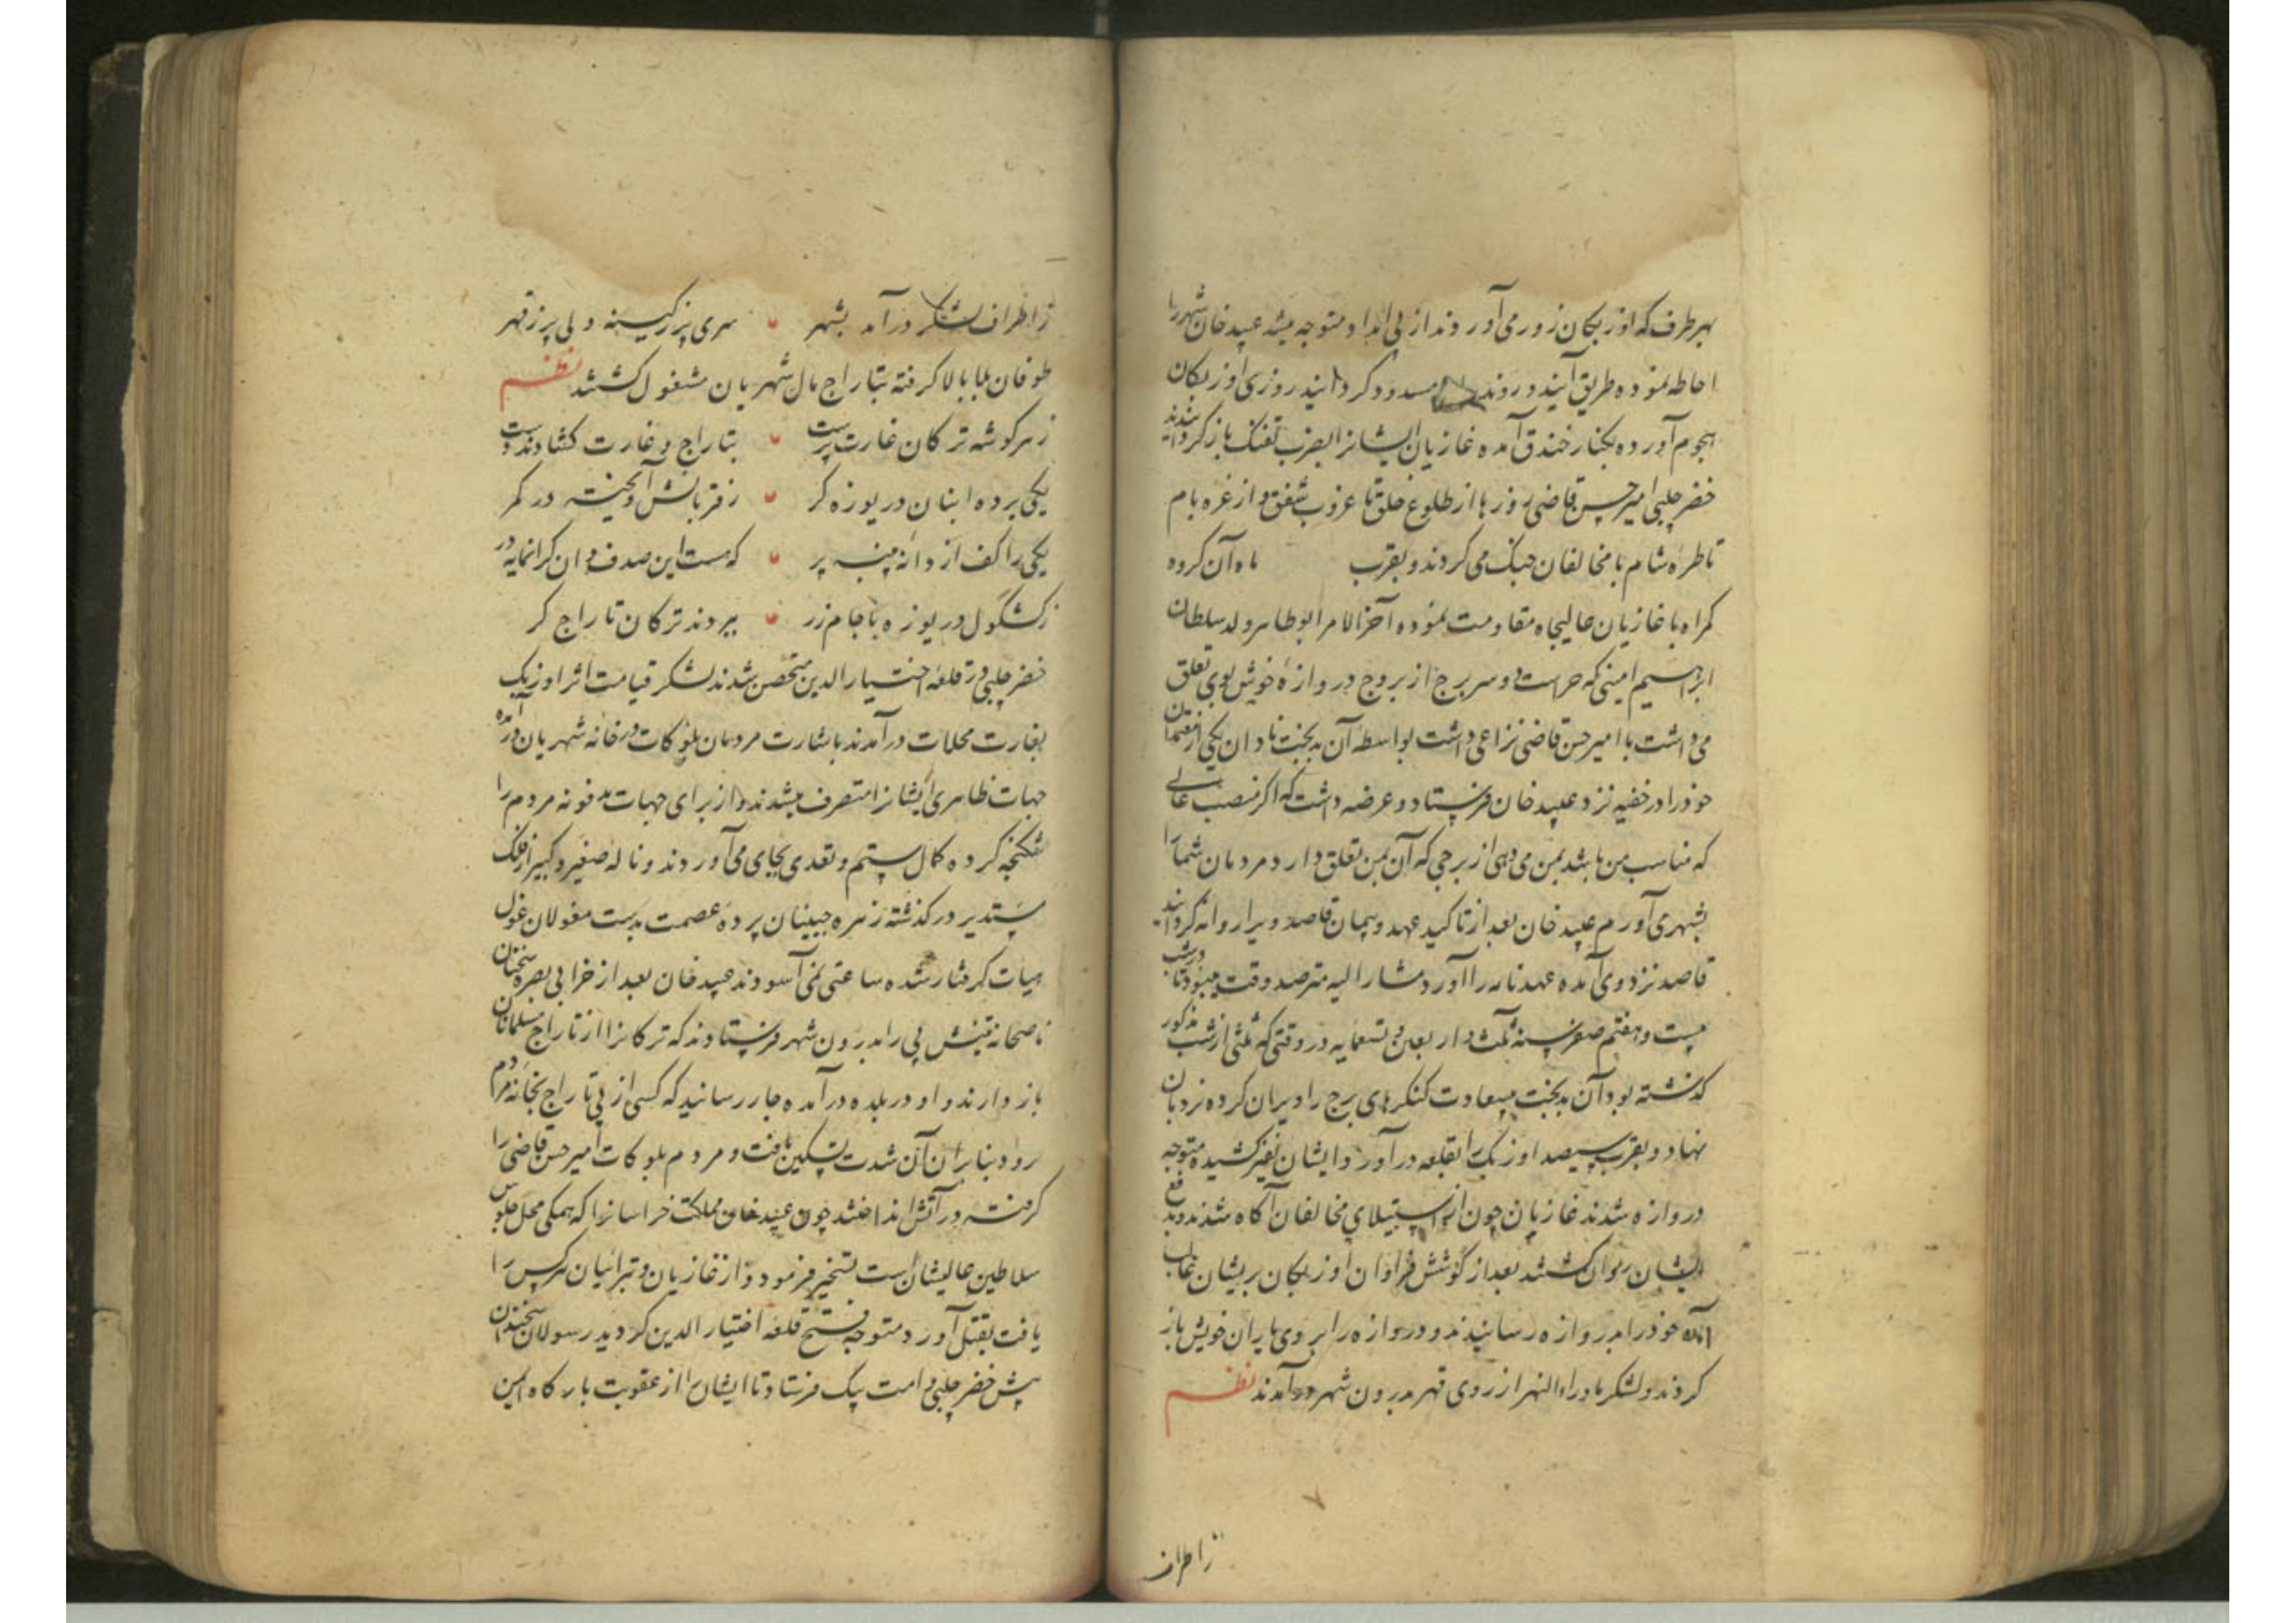 بهر طرف که اوزبکان زور می آوردند از پی امداد متوجه میشد عبید خان شهر را
احاطه نموده طریق آیند و روند مسدود گردانید روزی اوزبکان
هجوم آورده بکنار خندق آمده غازیان ایشانرا بضرب تفنک باز گردانیدند
خضر چلبی امیر حسن قاضی روزها از طلوع فلق تا غروب شفق و از غره بام
تا طره شام با مخالفان جنک می کردند و بقرب ماه آن گروه
گمراه با غازیان عالیجاه مقاومت نموده آخر الامر ابوطاهر ولد سلطان
ابراهیم امینی که حراست دو سه برج از بروج دروازه خوش بوی تعلق
می داشت با امیر حسن قاضی نزاعی داشت بواسطه آن بدبخت نادان یکی از معتمدان
خود را در خفیه نزد عبید خان فرستاد و عرضه داشت که اگر منصب عالی
که مناسب من باشد بمن می دهی از برجی که آن بمن تعلق دارد مردمان شما را
بشهر می آورم عبید خان بعد از تاکید عهد و پیمان قاصد ویرا روانه گردانید
قاصد نزد وی آمده عهدنامه را آورد مشار الیه مترصد وقت میبود تا در شب
بیست و هفتم صفر سنه ثلث و اربعین و تسعمایه در وقتی که ثلثی از شب مذکور
گذشته بود آن بدبخت بیسعادت کنگرهای برج را ویران کرده نردبان
نهاد و بقرب سیصد اوزبک را بقلعه در آورد و ایشان نفیر کشیده متوجه
دروازه شدند غازیان چون از استیلای مخالفان آگاه شدند و بدفع
ایشان روان گشتند بعد از کوشش فراوان اوزبکان بریشان غالب
آمده خود را بدروازه رسانیدند و دروازه را بر روی یاران خویش باز
کردند و لشکر ماوراء النهر از روی قهر بدرون شهر در آمدند نظم
ز اطراف
ز اطراف لشکر درآمد بشهر سری پر ز کینه دلی پر ز قهر
طوفان بلا بالا گرفته بتاراج مال شهریان مشغول گشتند نظم
ز هر گوشه ترکان غارت پرست بتاراج و غارت گشادند دست
یکی برده انبان دریوزه گر
یکی را کف از دانه پنبه پر که هست این صدف وان گرانمایه در
ز کشکول دریوزه با جام زر ببردند ترکان تاراج گر
خضر چلبی در قلعه اختیار الدین متحصن شدند لشکر قیامت اثر اوزبک
بغارت محلات در آمدند باشارت مردمان بلوکات در خانه شهریان در آمده
جهات ظاهری ایشانرا متصرف میشدند و از برای جهات مدفونه مردم را
شکنجه کرده کمال ستم و تعدی بجای می آوردند و ناله صغیر و کبیر از فلک
مستدیر در گذشته زهره جبینان پرده عصمت بدست مغولان غول
هیات گرفتار شده ساعتی نمی آسودند عبید خان بعد از خرابی بصره سخنان
ناصحانه بدرون شهر فرستادند که ترکانرا از تاراج مسلمانان
باز دارند و او در بلده در آمده جار رسانید که کسی از پی تاراج بخانه مردم
نرود بنابران آن شدت تسکین یافت و مردم بلوکات امیر حسن قاضی را
گرفته در آتش انداختند چون عبید خان مملکت خراسانرا که همگی محل جلوس
سلاطین عالیشان است تسخیر فرمود و از غازیان و تبرائیان هرکس را
یافت بقتل آورد متوجه فتح قلعه اختیار الدین گردید رسولان سخندان
پیش خضر چلبی و امت بیک فرستاد تا ایشان را از عقوبت بارگاه ایمن